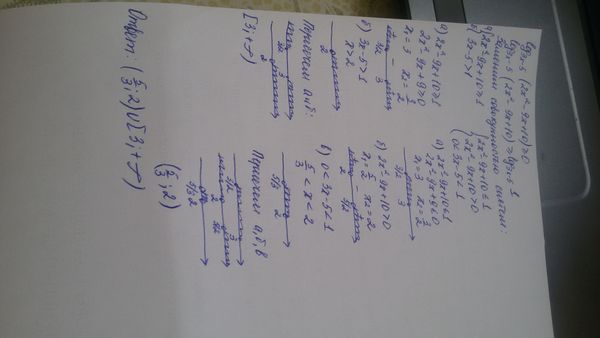 log₃ₓ₋₅ (2x² - 9x + 10) ≥ 0
log₃ₓ₋₅ (2x² - 9x + 10) ≥ log₃ₓ₋₅ 1
Заменим совокупностью систем:
{ 2x² - 9x + 10 ≥ 1
{ 3x - 5 > 1
{ 2x² - 9x + 10 ≤ 1
{ 2x² - 9x + 10 > 0
{ 0 < 3x - 5 < 1
а) 2x² - 9x + 10 ≥ 1
2x² - 9x + 9 ≥ 0
x₁ = 3 x₂ = 3/2
3/2 3
б) 3x - 5 > 1
x > 2
2
Пересечём а и б:
3/2 2 3
[3; +∞)
а) 2x² - 9x + 10 ≤ 1
2x² - 9x + 9 ≤ 0
x₁ = 3 x₂ = 3/2
3/2 3
б) 2x² - 9x + 10 > 0
x₁ = 5/2 x₂ = 2
2 5/2
в) 0 < 3x - 5 < 1
5/3 < x < 2
5/3 2
Пересечём а, б, в
3/2 3
2 5/2
5/3 2
(5/3; 2)
Ответ: (5/3; 2) ∪ [3; +∞)